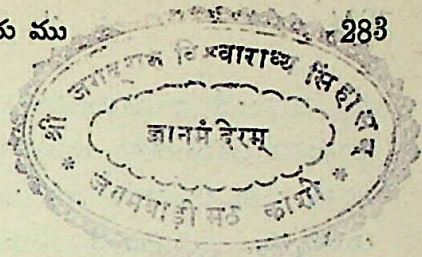 ము 283
श्री जगद्गुरु विश्वाराध्य सिंहासन
ज्ञानमंदिरम्
* जंगमवाड़ी मठ काशी *